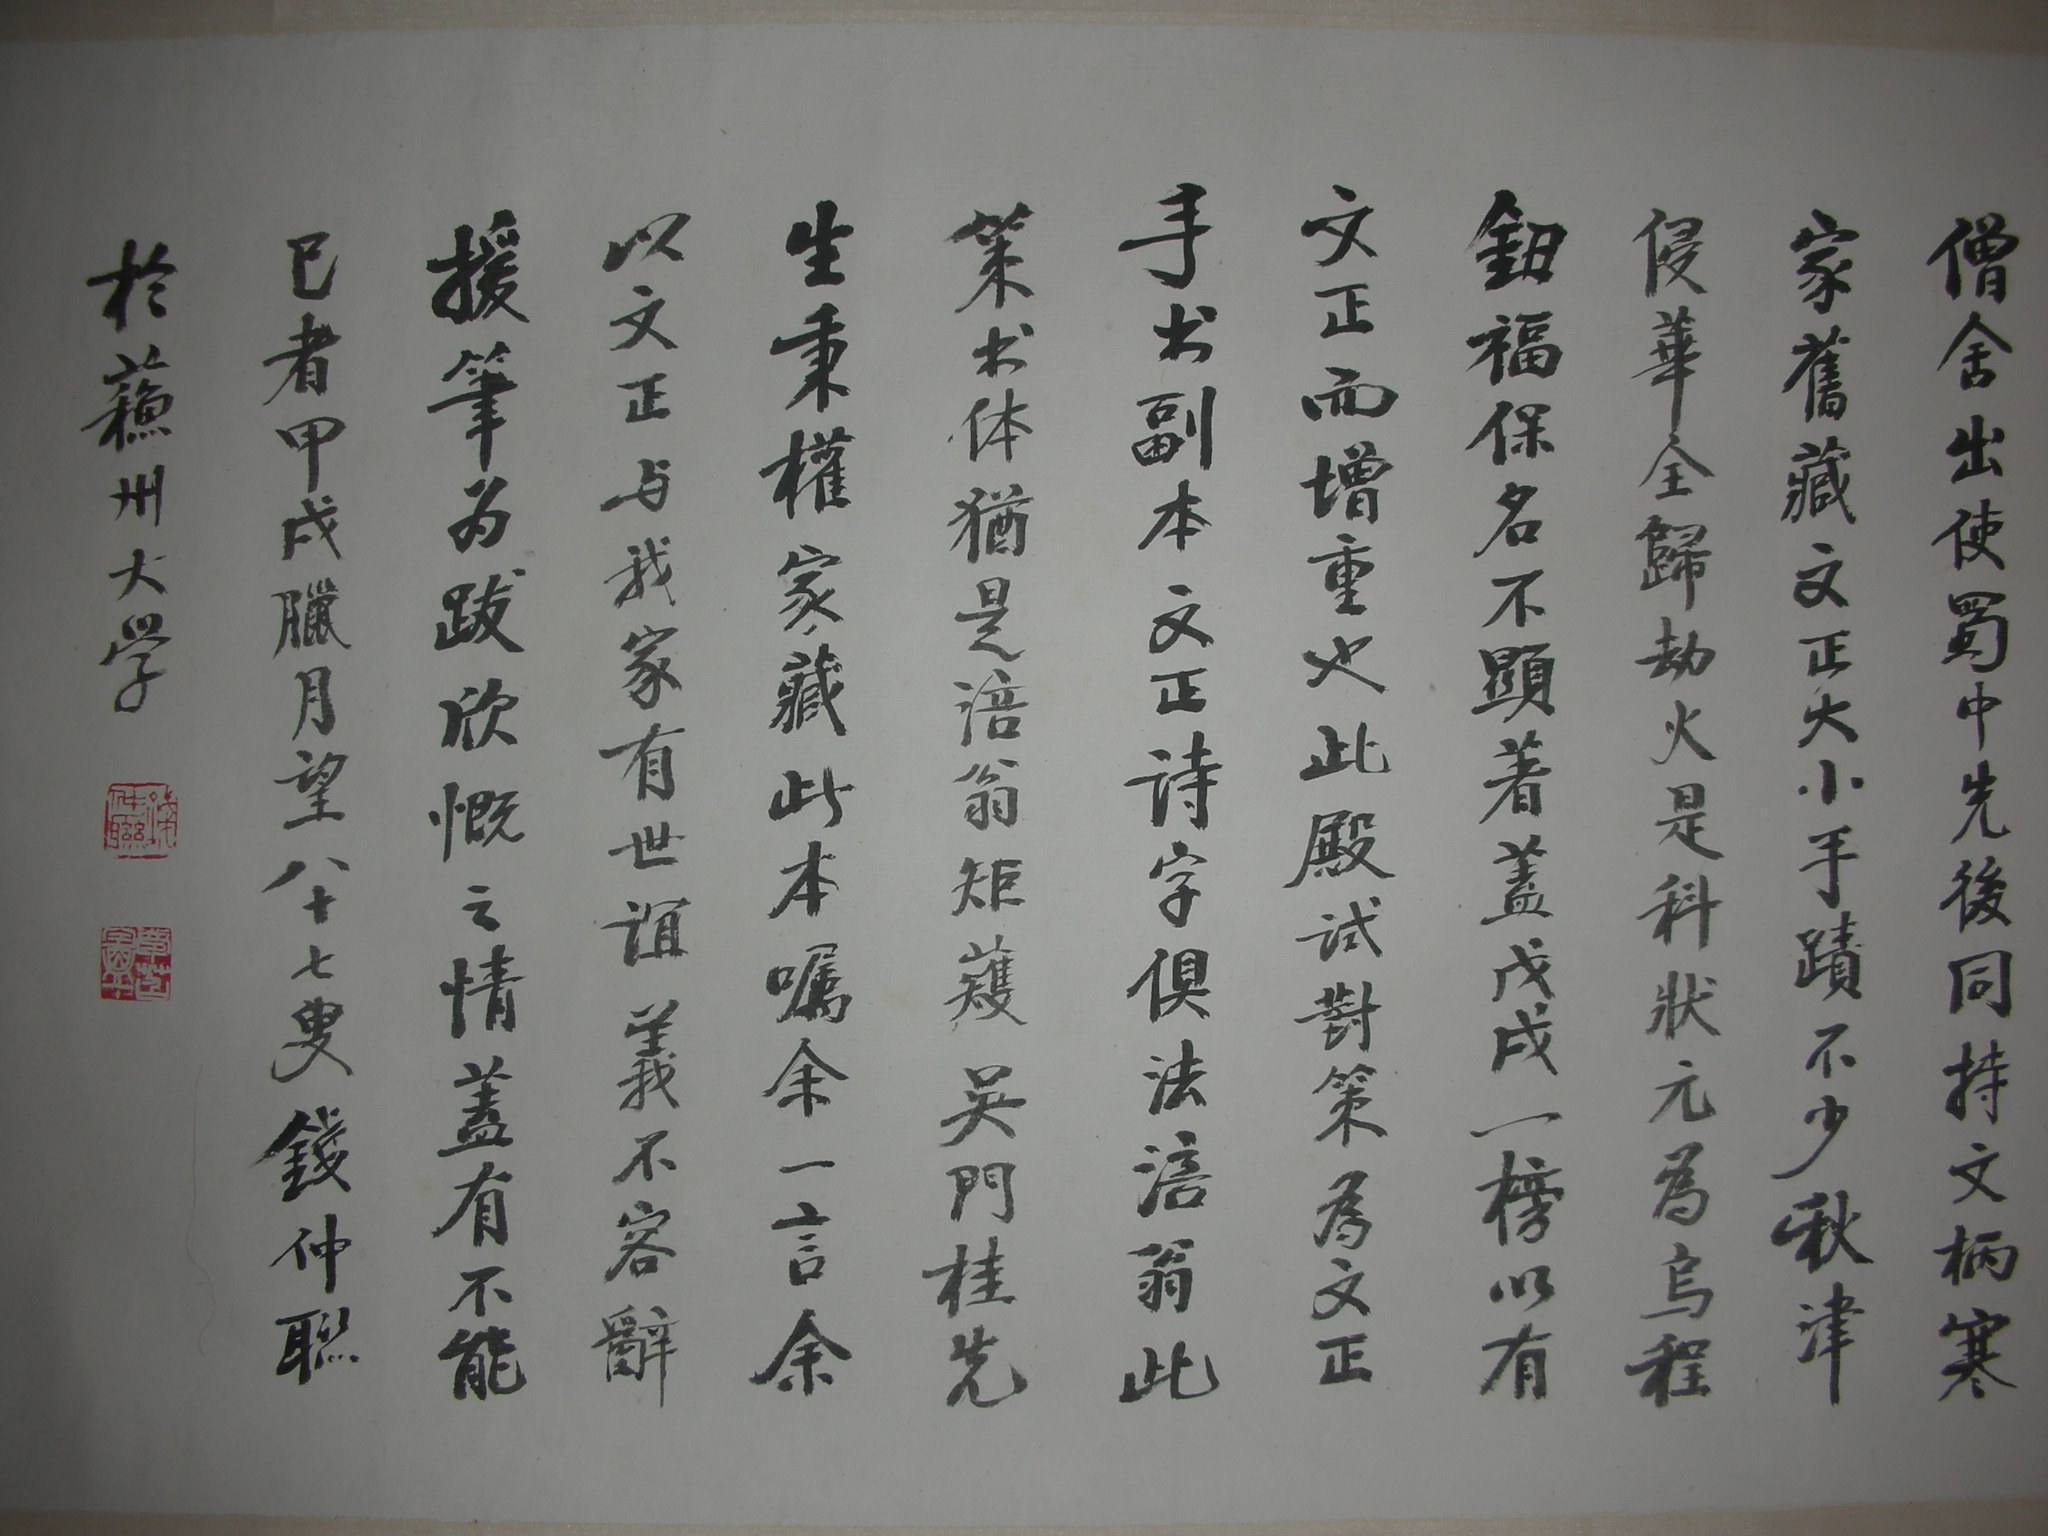 僧舍出使蜀中先後同持文柄寒
家舊藏文正大小手蹟不少秋津
侵華全歸劫火是科狀元為烏程
鈕福保名不顯著蓋戊戌一榜以有
文正而增重也此殿試對策為文正
手书副本文正詩字俱法涪翁此
策书体猶是涪翁矩矱吳門桂先
生秉權家藏此本囑余一言余
以文正与我家有世誼義不容辭
援筆为跋欣慨之情蓋有不能
已者甲戌臘月望八十七叟錢仲聯
於蘓州大学
錢仲聯